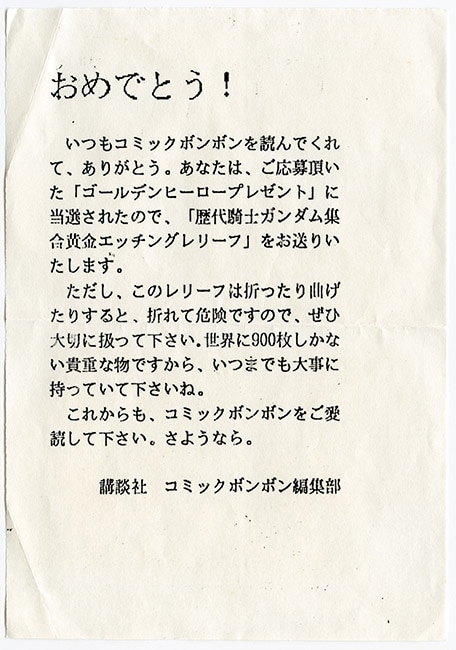 おめでとう！
いつもコミックボンボンを読んでくれ
て、ありがとう。あなたは、ご応募頂い
た「ゴールデンヒーロープレゼント」に
当選されたので、「歴代騎士ガンダム集
合黄金エッチングレリーフ」をお送りい
たします。
ただし、このレリーフは折ったり曲げ
たりすると、折れて危険ですので、ぜひ
大切に扱って下さい。世界に900枚しかな
い貴重な物ですから、いつまでも大事に
持っていて下さいね。
これからも、コミックボンボンをご愛
読して下さい。さようなら。
講談社　コミックボンボン編集部